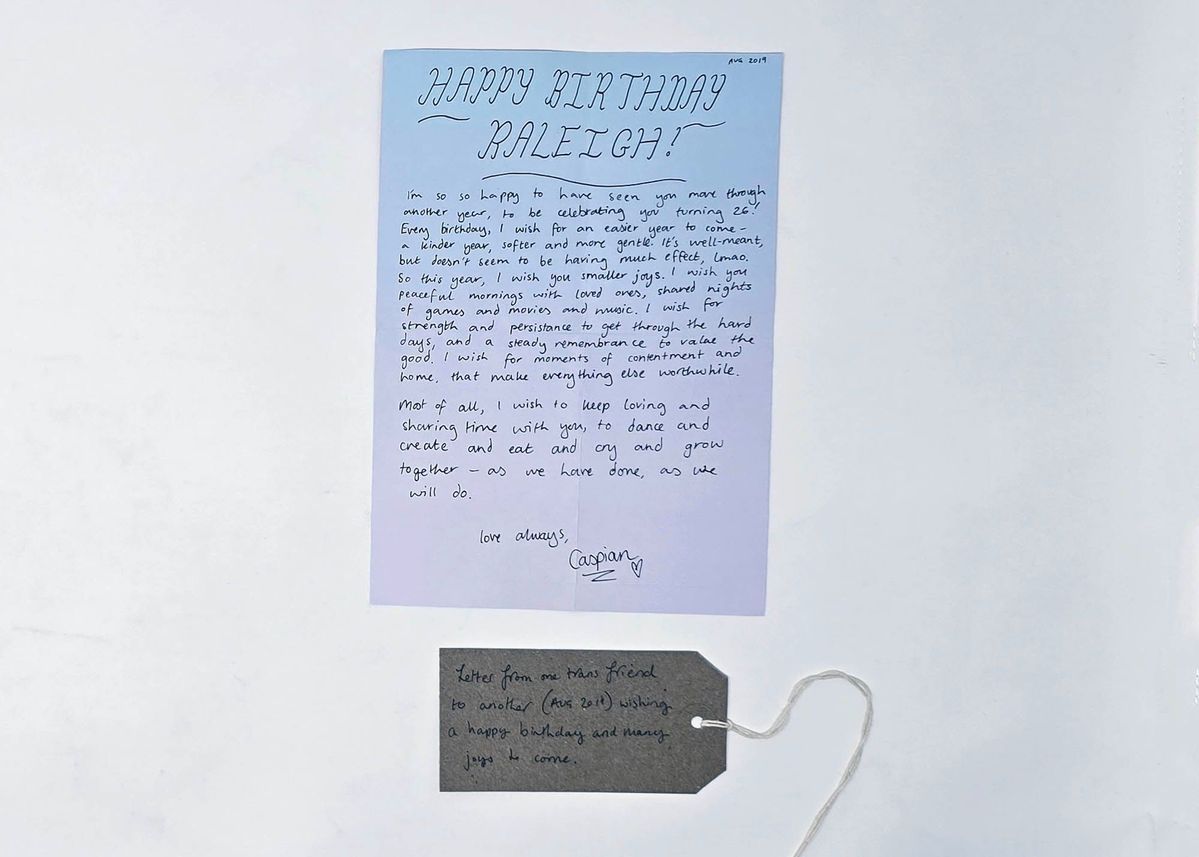 AUG 2019
HAPPY BIRTHDAY
RALEIGH!
I'm so so happy to have seen you move through
another year, to be celebrating you turning 26!
Every birthday, I wish for an easier year to come –
a kinder year, softer and more gentle. It's well-meant,
but doesn't seem to be having much effect, lmao.
So this year, I wish you smaller joys. I wish you
peaceful mornings with loved ones, shared nights
of games and movies and music. I wish for
strength and persistance to get through the hard
days, and a steady remembrance to value the
good. I wish for moments of contentment and
home, that make everything else worthwhile.
Most of all, I wish to keep loving and
sharing time with you, to dance and
create and eat and cry and grow
together – as we have done, as we
will do.
love always,
Caspian
Letter from one trans friend
to another (AUG 2019) wishing
a happy birthday and many
joys to come.